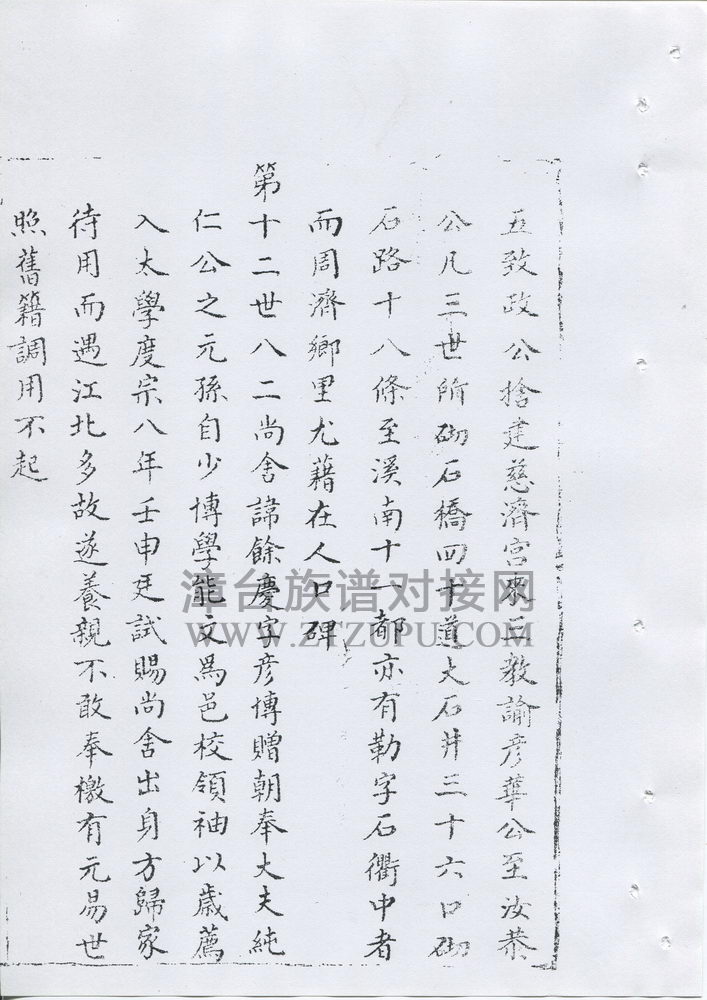 五致政公捨建慈濟宮衆三教諭彦華公至汝恭
公凡三世所砌石橋四十道大石井三十六口砌
石路十八條至溪南十一都亦有勒字石衢中者
而周濟鄉里尤藉在人口碑
第十二世八二尚舍諱餘慶字彦博贈朝奉大夫純
仁公之元孫自少博學能文爲邑校領袖以歲薦
入太學度宗八年壬申廷試賜尚舍出身方歸家
待用而遇江北多故遂養親不敢奉檄有元易世
照舊籍調用不起
漳台族谱对接网
WWW.ZTZUPU.COM